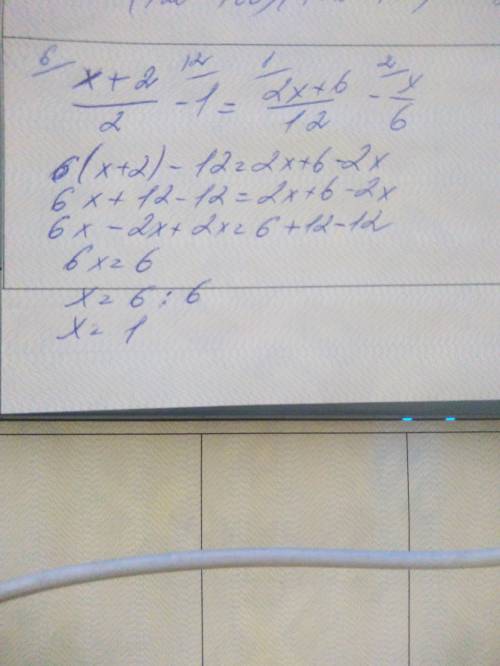 6/ x+2/2 12/ - 1 = 1/ 2x+6/12 - 2/ x/6
6(x+2) - 12 = 2x+6-2x
6x+12-12=2x+6-2x
6x-2x+2x=6+12-12
6x=6
x=6:6
x=1